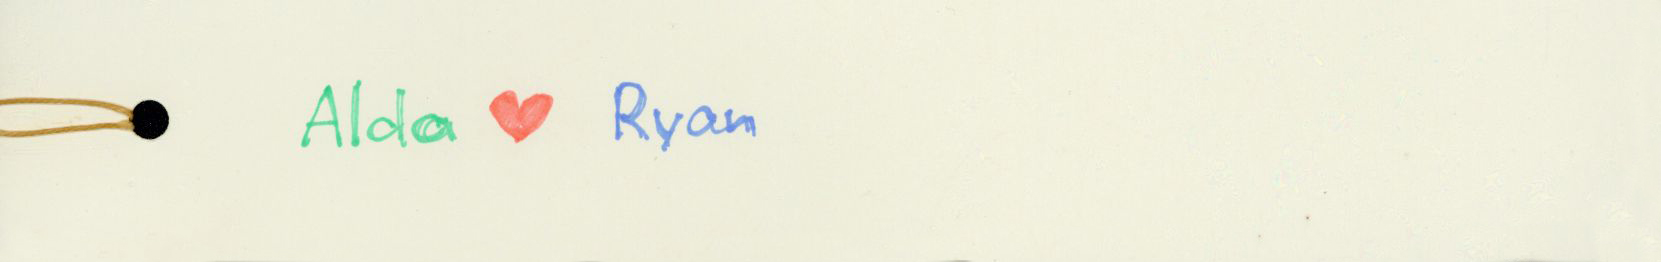 Alda ❤ Ryan